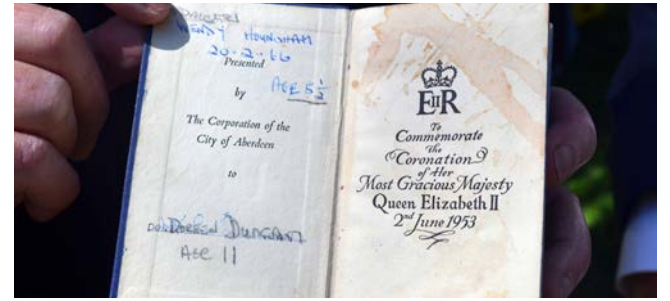 WENDY HOUNSHAM
20-2-66
Presented
AGE 5½
by
The Corporation of the
City of Aberdeen
to
DOREEN
AGE 11
EIIR
To
Commemorate
the
Coronation
of Her
Most Gracious Majesty
Queen Elizabeth II
2nd June 1953